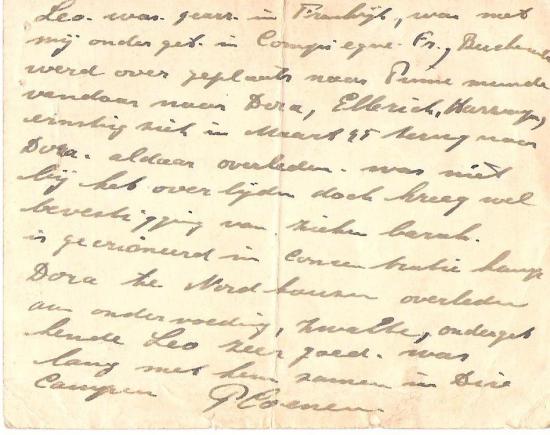 Leo. was. gearr. in Frankrijk, was met
mij onder get. in Compiegne. Fr, Buchenw
werd over geplaats naar Peine munde
vandaar naar Dora, Ellerich, Harzungen,
ernstig ziek in Maart 45 terug naar
Dora. aldaar overleden. was niet
bij het over lijden doch kreeg wel
bevestigging van zieken barak.
is gecrioneerd in Concentratie kamp
Dora the Nordhausen overleden
aan ondervoeding, zwakte, onderget
kende Leo zeer goed. was
lang met hem samen in Dire
Campen P Coenen